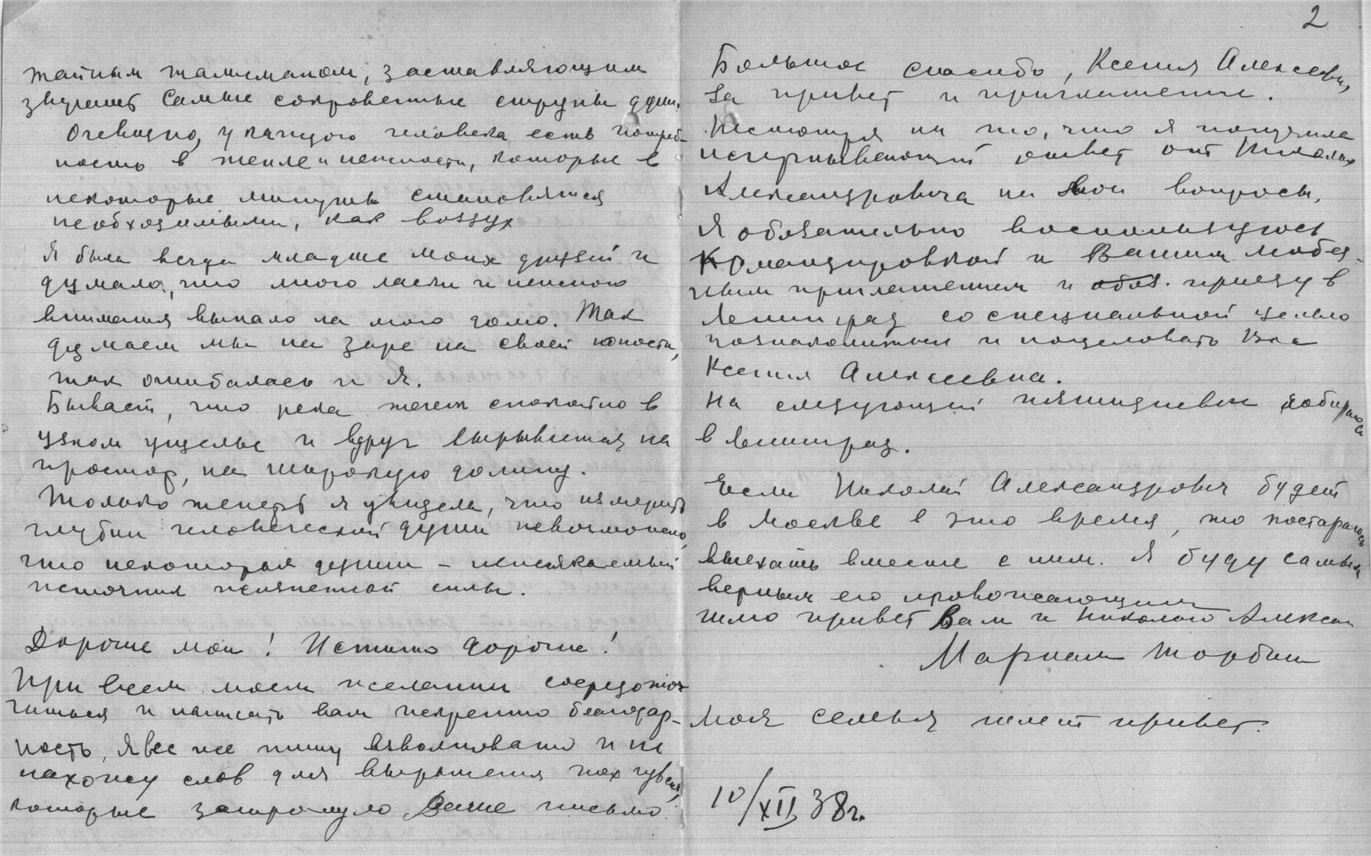 тайным талисманом, заставляющим
звучать самые сокровенные струны души.
Очевидно, у каждого человека есть потреб-
ность в тепле и нежности, которые в
некоторые минуты становятся
необходимыми, как воздух
Я была всегда младше моих друзей и
думала, что много ласки и нежного
внимания выпало на мою долю. Так
думаем мы на заре на своей юности,
так ошибалась и я.
Бывает, что река течет спокойно в
узком ущелье и вдруг вырывается на
простор, на широкую долину.
Только теперь я увидела, что измерить
глубин человеческой души невозможно,
что некоторые души – неиссякаемый
источник жизненной силы.
Дорогие мои! Истинно дорогие!
При всем моем желании сосредото-
читься и написать вам искренно благодар-
ность, я все же пишу взволновано и не
нахожу слов для выражения тех чувств,
которые затронуло Ваше письмо.
2
Большое спасибо, Ксения Алексеевна,
за привет и приглашение.
Несмотря на то, что я получила
исчерпывающий ответ от Николая
Александровича на мои вопросы,
я обязательно воспользуюсь
командировкой и Вашим любез-
ным приглашением и приеду в
Ленинград со специальной целью
познакомиться и поцеловать Вас
Ксения Алексеевна.
На следующей пятидневке собираюсь
в Ленинград.
Если Николай Александрович будет
в Москве в это время, то постараюсь
выехать вместе с ним. Я буду самым
верным его провожающим
шлю привет Вам и Николаю Алексан
Мариам
Моя семья шлет привет.
10/XII 38 г.